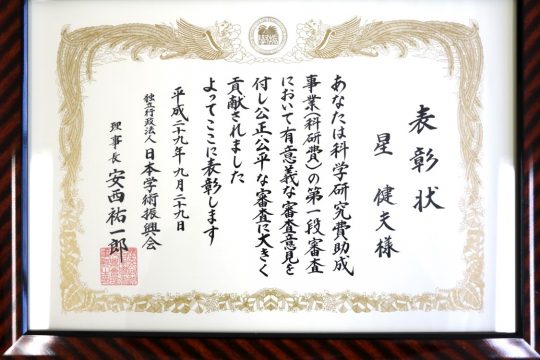 表彰状
星 健夫様
あなたは科学研究費助成
事業(科研費)の第一段審査
において有意義な審査意見を
付し公正公平な審査に大きく
貢献されました
よってここに表彰します
平成二十九年九月二十九日
独立行政法人日本学術振興会
理事長 安西祐一郎